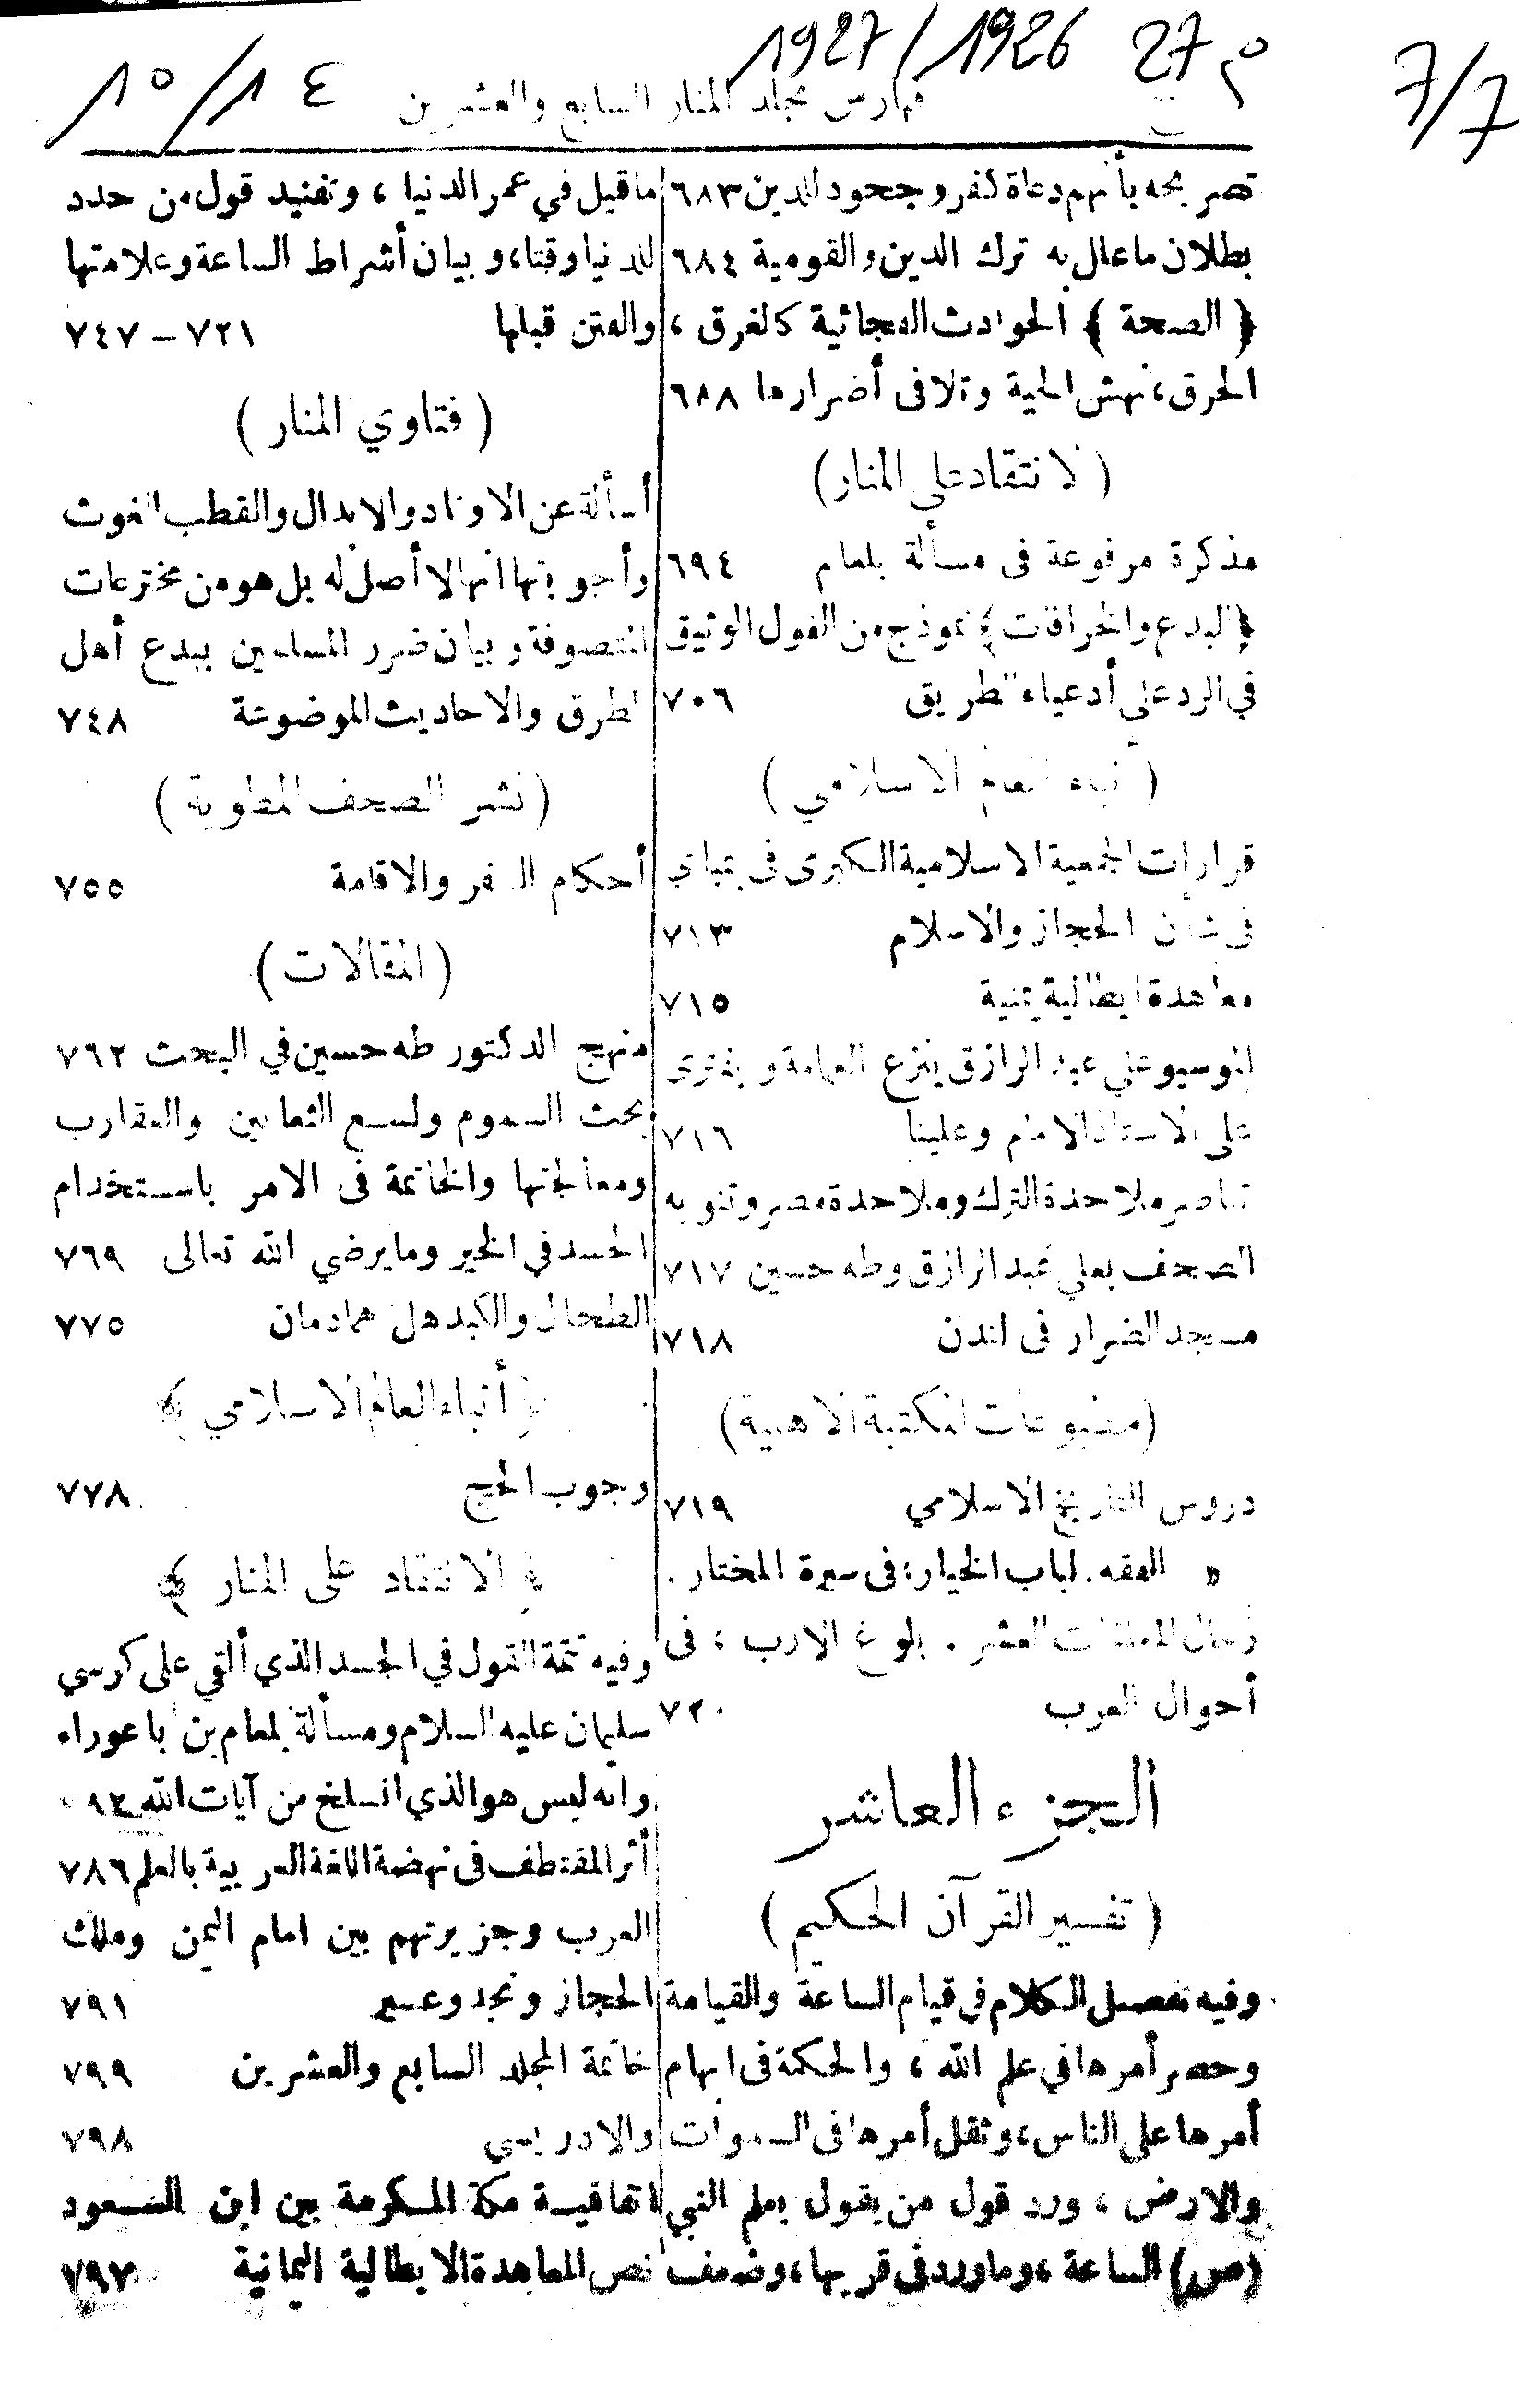 م 27 1926/1927
7/7
١٤/١٥
فهارس مجلد المنار السابع والعشرين
تصريحه بأنهم دعاة كفر وجحود للدين ٦٨٣
بطلان ماعلل به ترك الدين والقومية ٦٨٤
﴿ الصحة ﴾ الحوادث الفجائية كالغرق ،
الحرق، نهش الحية وتلافى أضرارها ٦٨٨
( لانتقاد على المنار )
مذكرة مرفوعة فى مسألة بلعام ٦٩٤
﴿البدع والخرافات﴾ نموذج من القول الوثيق
في الرد على أدعياء الطريق ٧٠٦
( أنباء العالم الاسلامي )
قرارات الجمعية الاسلامية الكبرى فى بتباى
فى شأن الحجاز والاسلام ٧١٣
معاهدة ايطالية يمنية ٧١٥
الموسيو علي عبد الرازق ينزع العمامة ويفترى
على الاستاذ الامام وعلينا ٧١٦
تناصر ملاحدة الترك وملاحدة مصر وتنويه
الصحف بعلي عبد الرازق وطه حسين ٧١٧
مسجد الضرار فى لندن ٧١٨
(مطبوعات المكتبة الاهلية)
دروس التاريخ الاسلامي ٧١٩
« الفقه. لباب الخيار، فى سيرة المختار .
رجال المعلقات العشر . بلوغ الارب ، فى
أحوال العرب ٧٢٠
الجزء العاشر
( تفسير القرآن الحكيم )
وفيه تفصيل الكلام في قيام الساعة والقيامة
وحصر أمرها في علم الله ، والحكمة فى ابهام
أمرها على الناس، وثقل أمرها فى السموات
والارض ، ورد قول من يقول بعلم النبي
(ص) الساعة ، وماورد فى قربها، وضعف
ماقيل في عمر الدنيا ، وتفنيد قول من حدد
للدنيا وقتا، وبيان أشراط الساعة وعلامتها
والفتن قبلها ٧٢١ – ٧٤٧
( فتاوي المنار )
أسألة عن الاوتاد والابدال والقطب الغوث
وأجوبتها انها لا أصل له بل هو من مخترعات
المتصوفة وبيان ضرر المسلمين ببدع أهل
الطرق والاحاديث الموضوعة ٧٤٨
(نشر الصحف المطوية )
أحكام السفر والاقامة ٧٥٥
( المقالات )
منهج الدكتور طه حسين في البحث ٧٦٢
بحث السموم ولسع الثعابين والعقارب
ومعالجتها والخاتمة فى الامر باستخدام
الحسد في الخير وما يرضي الله تعالى ٧٦٩
الطحال والكبد هل هما دمان ٧٧٥
﴿ أنباء العالم الاسلامي ﴾
وجوب الحج ٧٧٨
﴿ الانتقاد على المنار ﴾
وفيه تتمة القول في الجسد الذي ألقي على كرسي
سليمان عليه السلام ومسألة بلعام بن باعوراء
وانه ليس هو الذي انسلخ من آيات الله
أثر المقتطف فى نهضة اللغة العربية بالعلم ٧٨٦
العرب وجزيرتهم بين امام اليمن وملك
الحجاز ونجد وعسير ٧٩١
خاتمة المجلد السابع والعشرين ٧٩٩
والادريسي ٧٩٨
اتفاقيـة مكة المكرمة بين ابن السعود
نص المعاهدة الايطالية اليمانية ٧٩٧